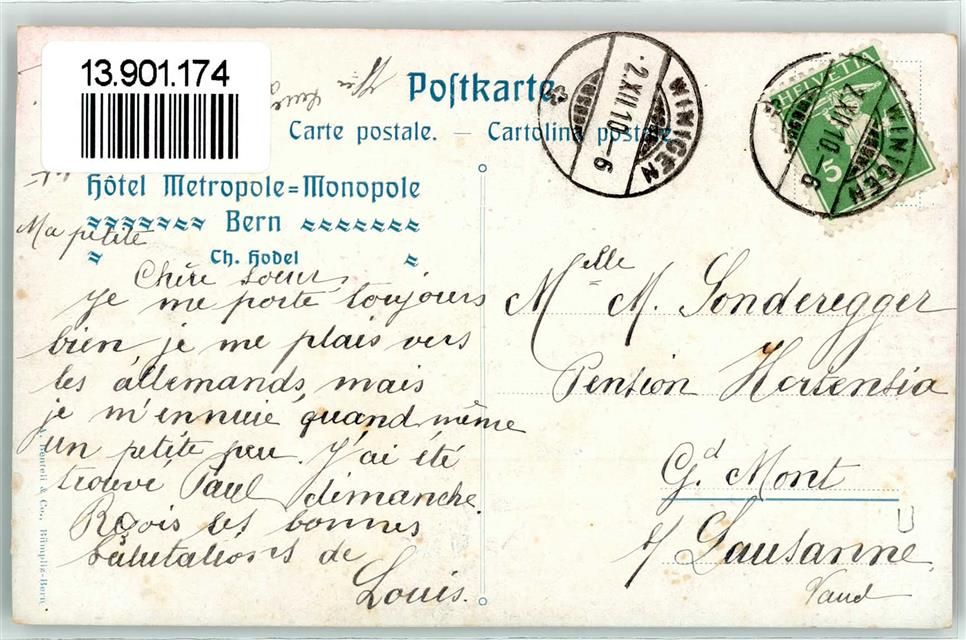 13.901.174
Postkarte
Carte postale. — Cartolina postale
Hôtel Metropole=Monopole
Bern
Ch. Hodel
WINIGEN
-2.XII.10-6
WINIGEN
-2.XII.10-6
HELVETIA
5
Ma petite
Chère soeur,
Je me porte toujours
bien, je me plais vers
les allemands, mais
je m'ennuie quand même
un petite peu. J'ai été
trouvé Paul démanche.
Reçois les bonnes
salutations de
Louis.
Melle M. Sonderegger
Pension Hortensia
Gd Mont
s/ Lausanne
Vaud
& Co., Bümpliz-Bern